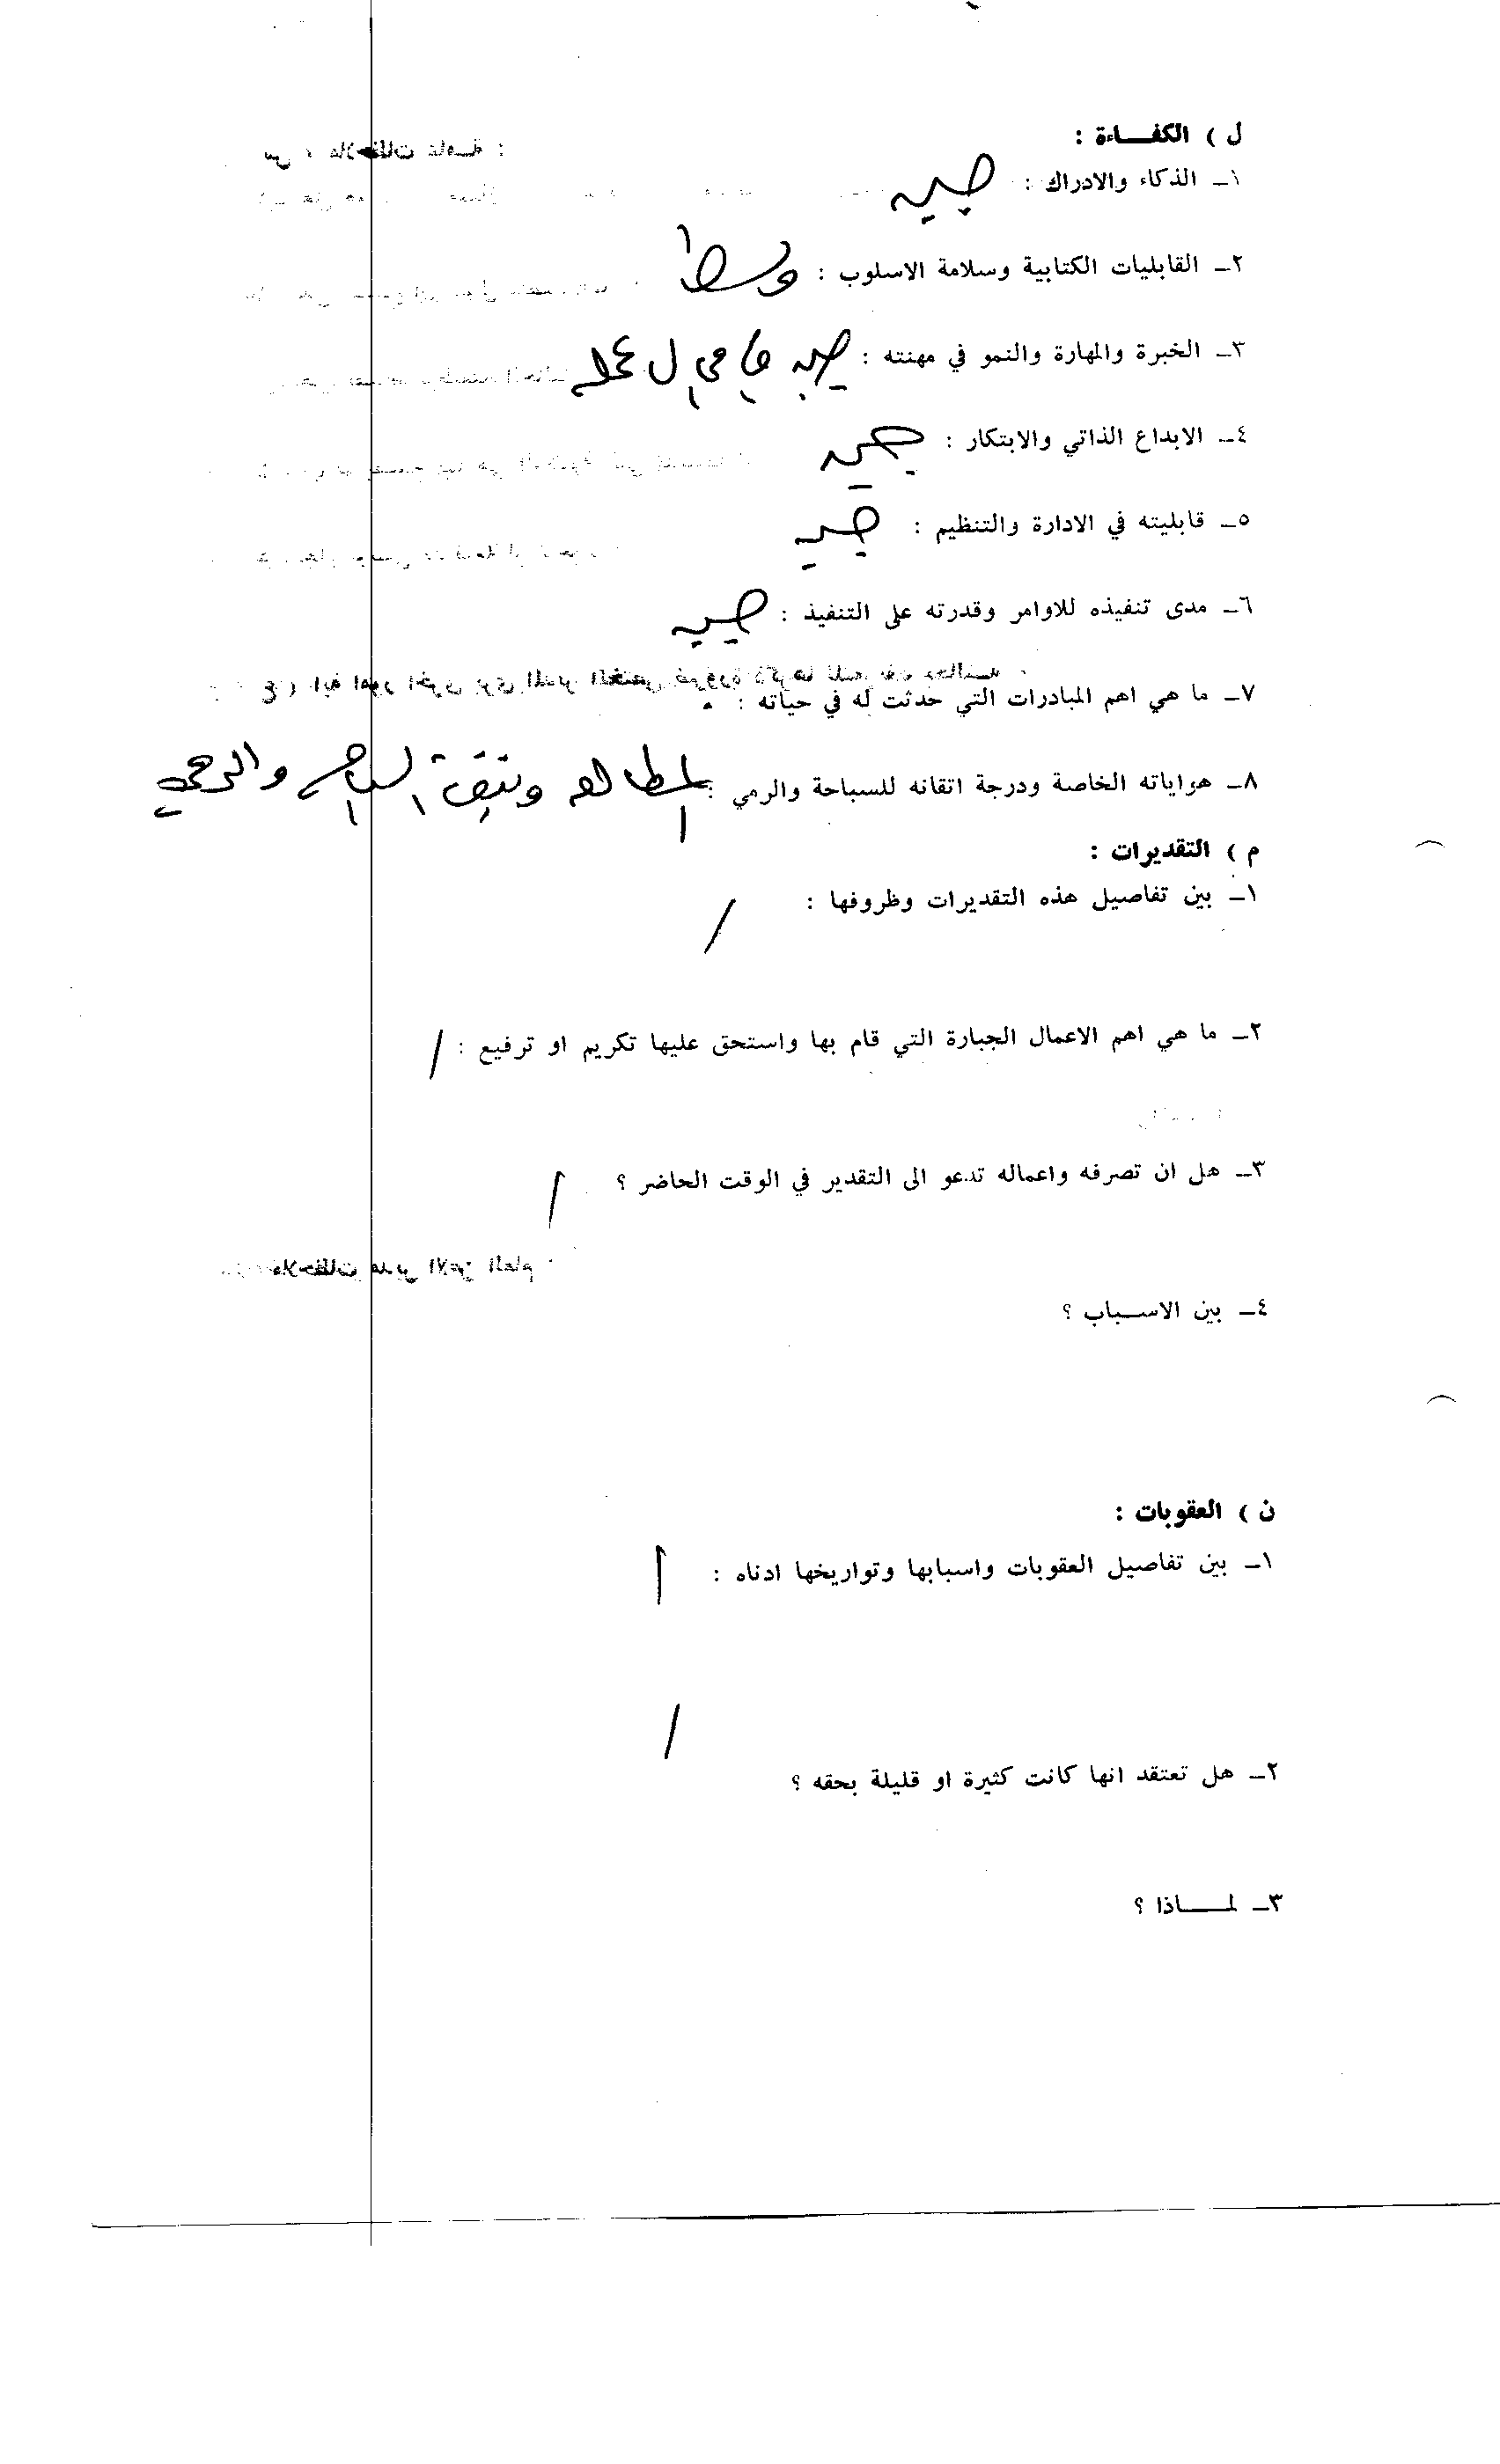 ل ) الكفـــاءة :
١ـ الذكاء والادراك : جيد
٢ـ القابليات الكتابية وسلامة الاسلوب : وسط
٣ـ الخبرة والمهارة والنمو في مهنته : جيد في مجال عمله
٤ـ الابداع الذاتي والابتكار : جيد
٥ـ قابليته في الادارة والتنظيم : جيد
٦ـ مدى تنفيذه للاوامر وقدرته على التنفيذ : جيد
٧ـ ما هي اهم المبادرات التي حدثت له في حياته :
٨ـ هواياته الخاصة ودرجة اتقانه للسباحة والرمي : المطالعة ويتقن السباحة والرمي
م ) التقديرات :
١ـ بين تفاصيل هذه التقديرات وظروفها : /
٢ـ ما هي اهم الاعمال الجبارة التي قام بها واستحق عليها تكريم او ترفيع : /
٣ـ هل ان تصرفه واعماله تدعو الى التقدير في الوقت الحاضر ؟ /
٤ـ بين الاســـباب ؟
ن ) العقوبات :
١ـ بين تفاصيل العقوبات واسبابها وتواريخها ادناه : /
/
٢ـ هل تعتقد انها كانت كثيرة او قليلة بحقه ؟
٣ـ لمـــــاذا ؟